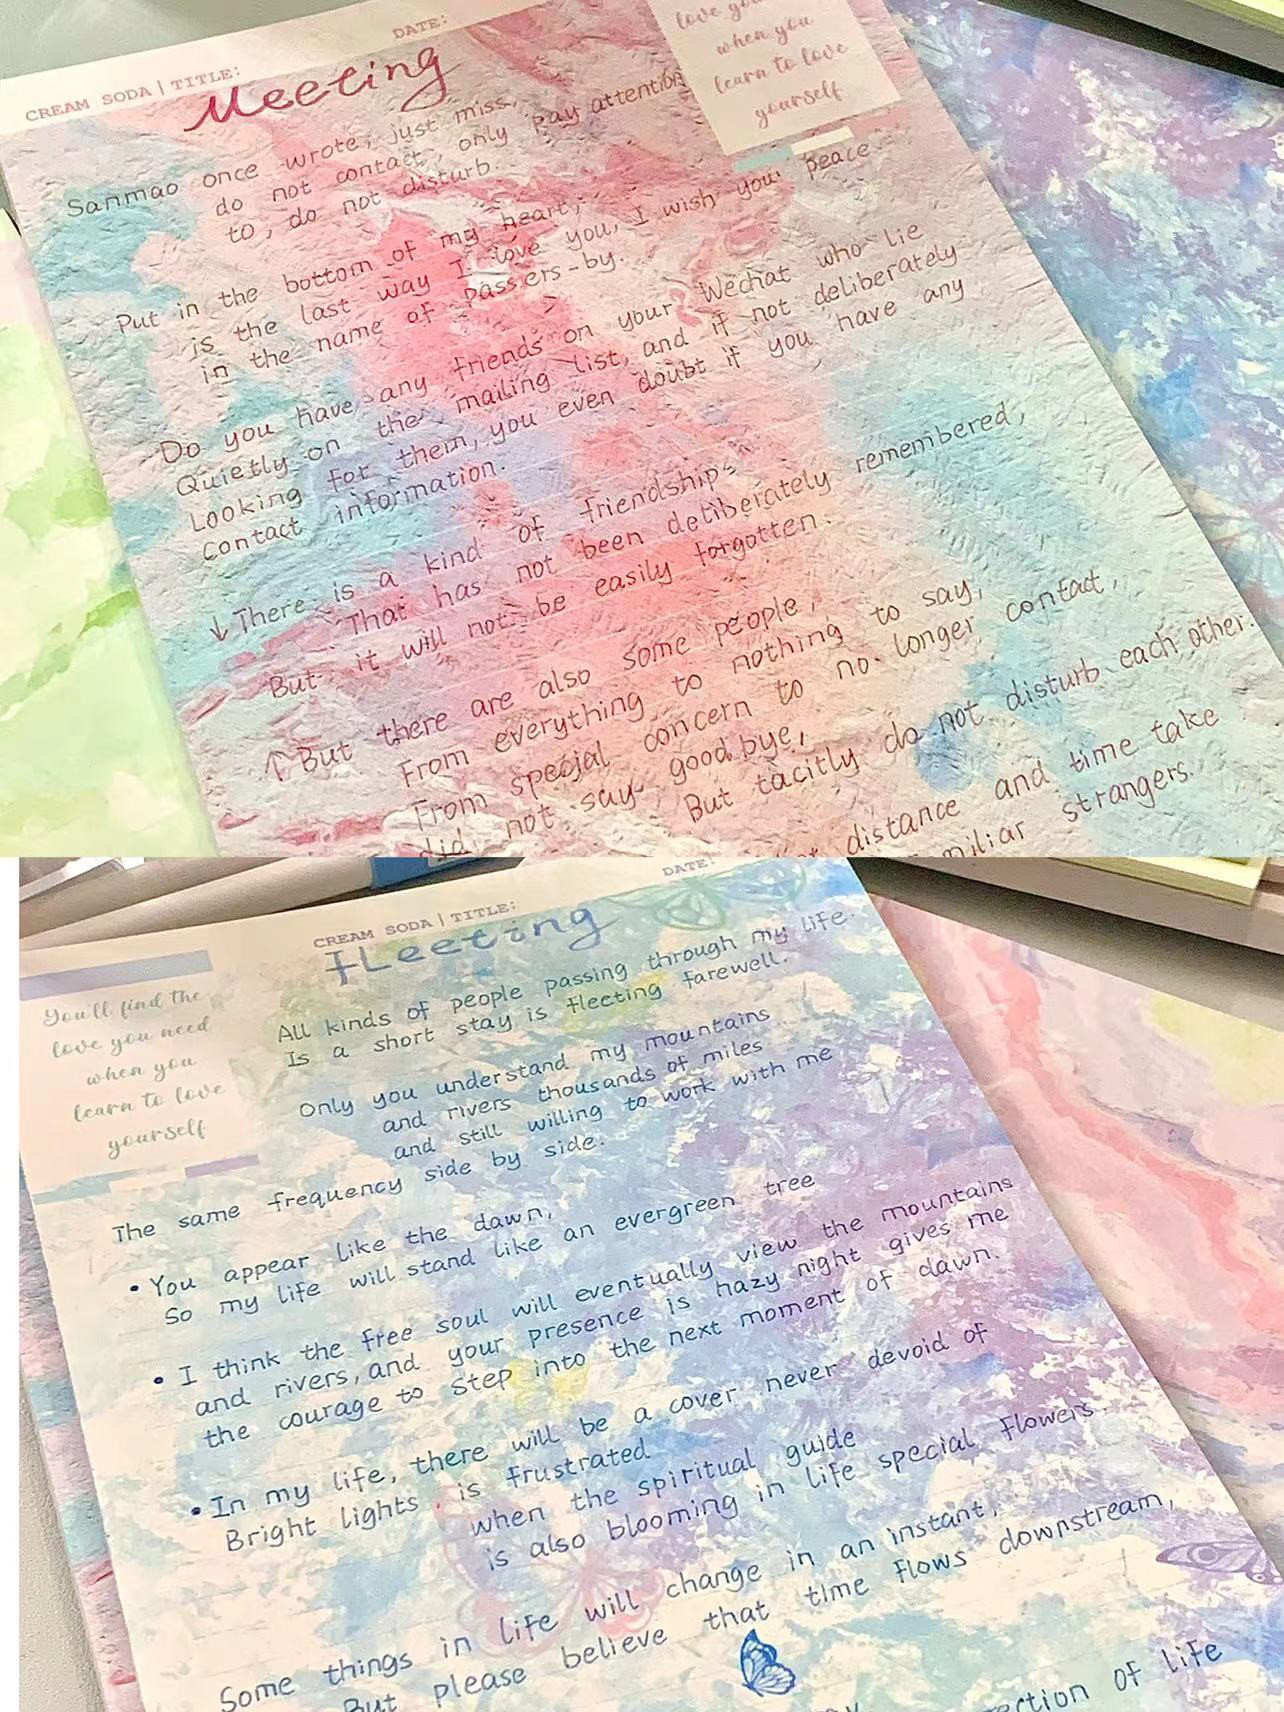 DATE:
CREAM SODA | TITLE:
Meeting
love you
when you
learn to love
yourself
Sanmao once wrote, just miss,
do not contact, only pay attention
to, do not disturb.
Put in the bottom of my heart,
is the last way I love you, I wish you peace
in the name of passers-by.
Do you have any friends on your Wechat who lie
Quietly on the mailing list, and if not deliberately
Looking for them, you even doubt if you have any
Contact information.
↓ There is a kind of friendship
That has not been deliberately remembered,
But it will not be easily forgotten.
↑ But there are also some people,
From everything to nothing to say,
From special concern to no longer contact,
did not say goodbye,
But tacitly do not disturb each other.
distance and time take
strangers.
DATE:
CREAM SODA | TITLE:
fleeting
You'll find the
love you need
when you
learn to love
yourself
All kinds of people passing through my life.
Is a short stay is fleeting farewell.
Only you understand my mountains
and rivers thousands of miles
and still willing to work with me
side by side.
The same frequency
• You appear like the dawn,
So my life will stand like an evergreen tree
• I think the free soul will eventually view the mountains
and rivers, and your presence is hazy night gives me
the courage to step into the next moment of dawn.
• In my life, there will be a cover never devoid of
Bright lights. is frustrated
when the spiritual guide
is also blooming in life special flowers.
Some things in life will change in an instant,
But please believe that time flows downstream,
of life